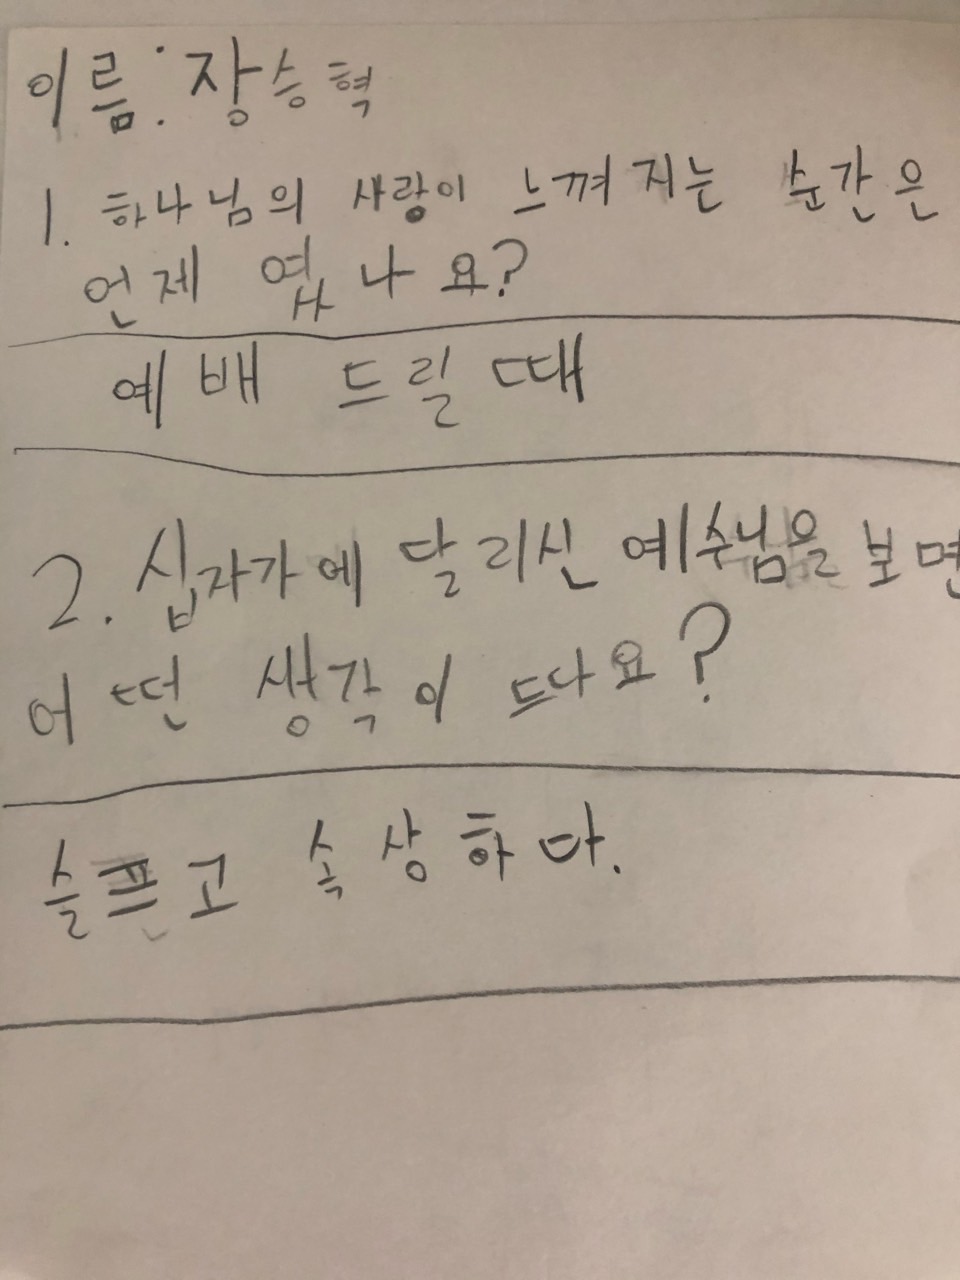 이름: 장승혁
1. 하나님의 사랑이 느껴지는 순간은
언제 였나요?
예배 드릴 때
2. 십자가에 달리신 예수님을 보면
어떤 생각이 드다요?
슬프고 속상하다.